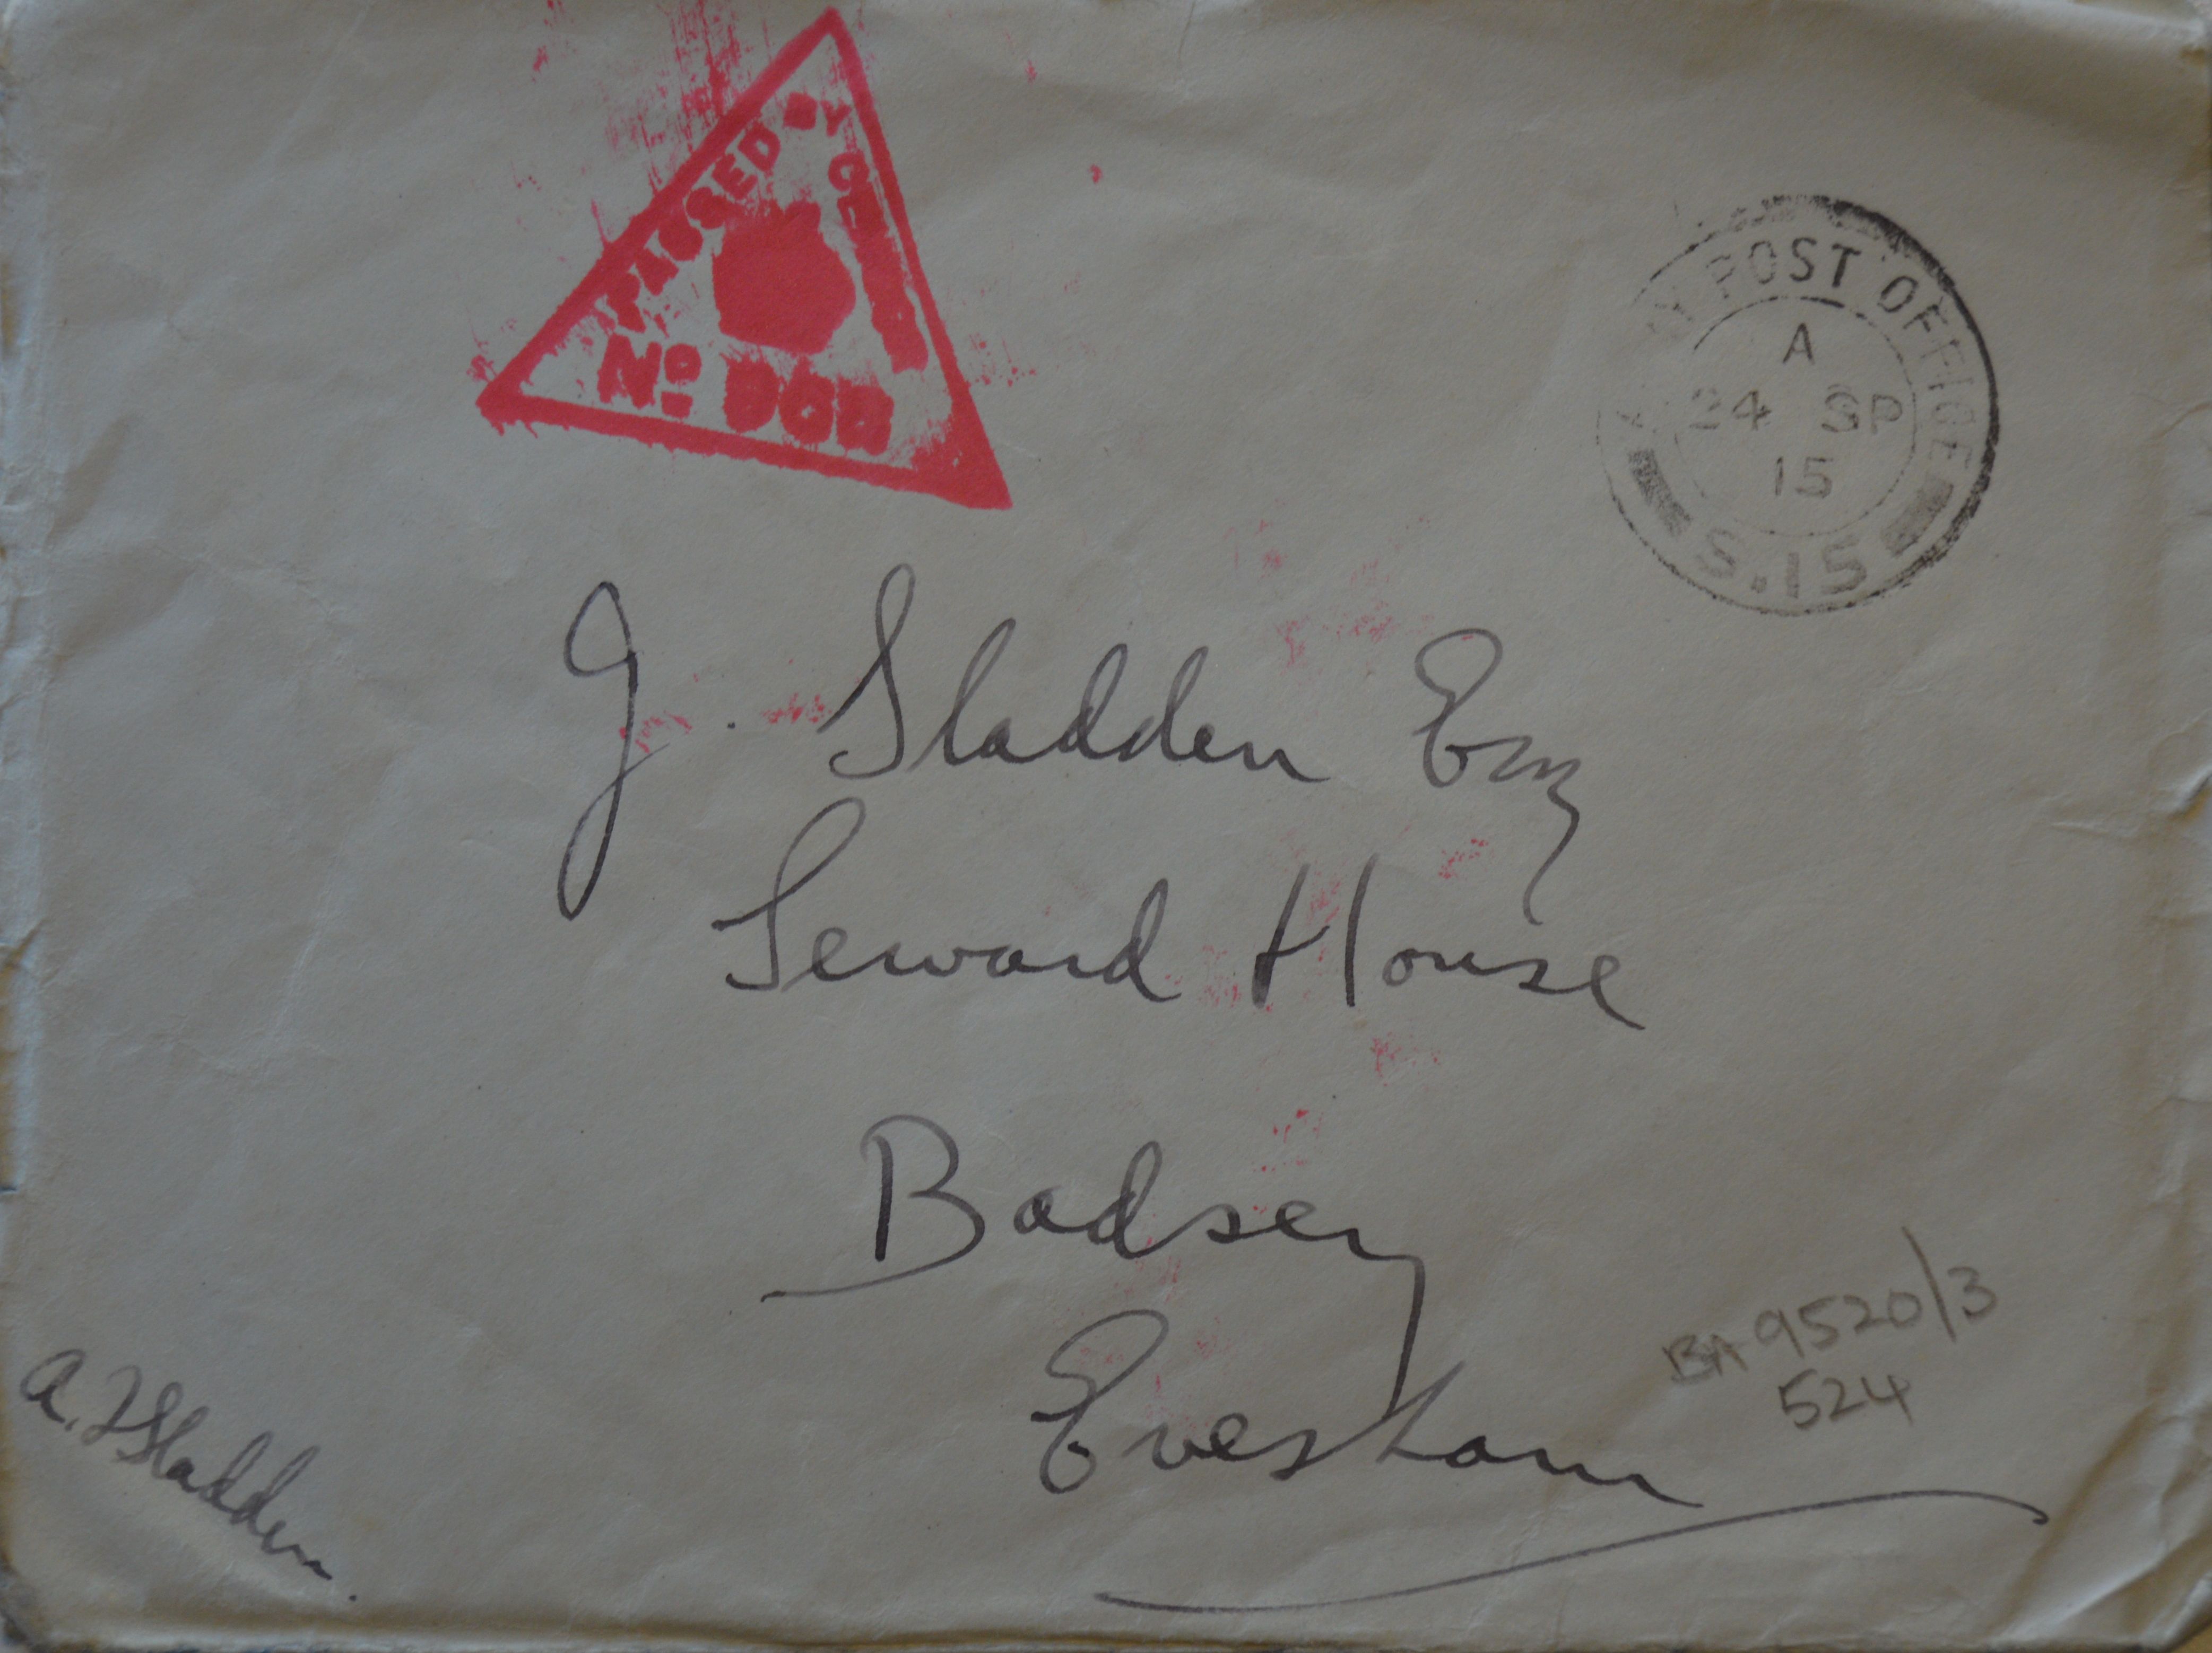 PASSED BY
No
POST OFFICE
A
24 SP
15
S.15
J. Sladden Esq
Seward House
Badsey
Evesham
A. F. Sladden.
BA 9520/3
524